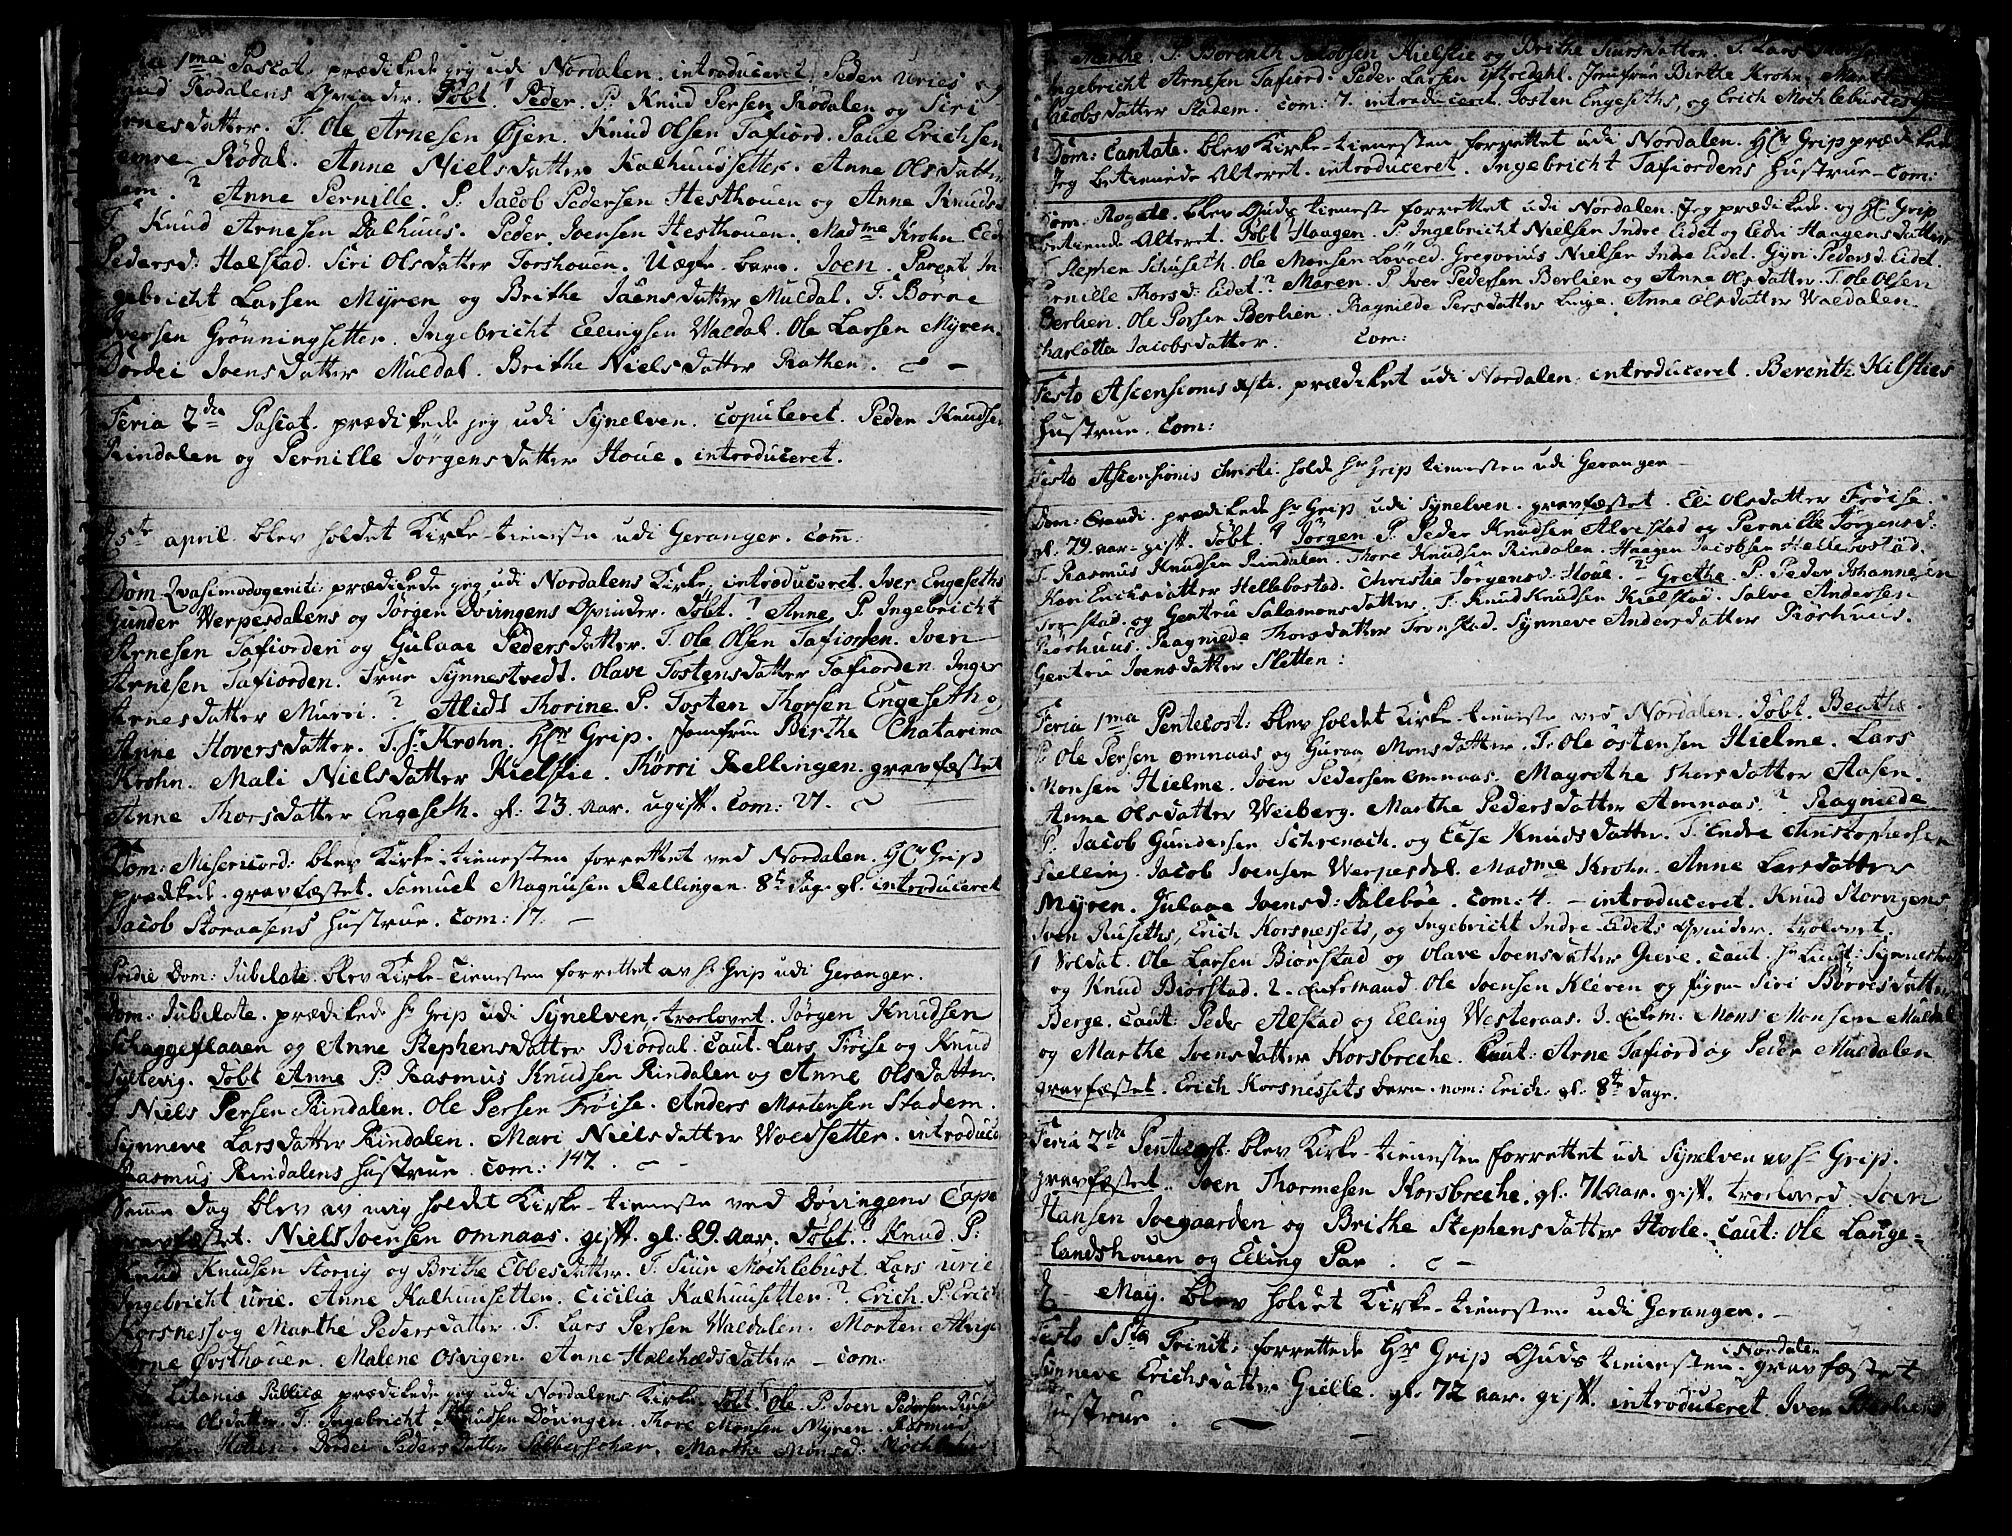 1ma Pascat. prædikede jeg udi Nordalen. introduceret. Peder Uries og
Knud Rødalens Qvinder. Døbt 1 Peder. P. Knud Persen Rødalen og Siri
Arnesdatter. T. Ole Arnesen Øien. Knud Olsen Tafiord. Paul Erichsen
Rødal. Anne Nielsdatter Kalhuussetter. Anne Olsdatter
2 Anne Pernille. P. Jacob Pedersen Hesthouen og Anne Knudsd.
T. Knud Arnesen Dalhuus. Peder Joensen Hesthouen. Madme Krohn.
Pedersd: Halstad. Siri Olsdatter Torshouen. Uægte barn. Joen. Parent. In-
gebricht Larsen Myren og Brithe Jaensdatter Muldal. T. Børne
Iversen Grønningsetter. Ingebricht Ellingsen Waldal. Ole Larsen Myren.
Dordei Joensdatter Muldal. Brithe Nielsdatter Rathen.
Feria 2da Pascat. prædikede jeg udi Synelven. copuleret. Peder Knudsen
Rindalen og Pernille Jørgensdatter Houe. introduceret.
april. blev holdet Kirke-tieneste udi Geranger. com:
Dom Qvasimodogeniti: prædikede jeg udi Nordalens Kirke. introduceret. Iver Engeseths
Gunder Werpesdalens og Jørgen Døvingens Qvinder. Døbt. 1 Anne. P. Ingebricht
Arnesen Tafiorden og Gulaae Pedersdatter. T. Ole Olsen Tafiorden. Joen
Arnesen Tafiorden. Synnestvedt. Olave Tostensdatter Tafiorden. Inger
Arnesdatter Murri. 2 Alids Thorine. P. Tosten Thorsen Engeseth og
Anne Hoversdatter. T. Hr Krohn. Hr Grip. Jomfru Birthe Chatarina
Krohn. Mali Nielsdatter Kielstie. Thorri Rellingen. gravfæstet
Anne Thorsdatter Engeseth. gl: 23. aar. ugift. Com: 27.
Dom: Misericord: blev Kirke-tienesten forrettet ved Nordalen. Hr Grip
prædikede. gravfæstet. Samuel Magnusen Rellingen. 8te dag. gl. introduceret
Jacob Storaasens hustrue. com: 17.
Pridie Dom: Jubilate. blev Kirke-tienesten forrettet av Hr Grip udi Geranger.
Dom: Jubilate. prædikede Hr Grip udi Synelven. troelovet. Jørgen Knudsen
Schaggeflaaen og Anne Stephensdatter Biørdal. caut. Lars Frøise og Knud
Døbt Anne P. Rasmus Knudsen Rindalen og Anne Olsdatter.
T. Niels Persen Rindalen. Ole Persen Frøise. Anders Mortensen Stadem.
Synneve Larsdatter Rindalen. Mari Nielsdatter Woldsetter. introduce
Rasmus Rindalens hustrue. com: 147.
Samme dag blev av mig holdet Kirke-tieneste ved Døvingens Cape
gravfæstet. Niels Joensen Omnaas. gift. gl: 89. aar. Døbt. Knud. P:
Knud Knudsen Storvig og Brithe Ebbesdatter. T. Siur Mochlebust. Lars Urie
Ingebricht Urie. Anne Kalhuusetter. Cicilia Kalhuusetter. 2. Erich. P. Erich
Korsnes og Marthe Pedersdatter. T. Lars Persen Waldalen. Morten
Arne Øvsthouen. Malene Osvigen. Anne com:
Litaniæ Publicæ prædikede jeg udi Nordalens Kirke. Døbt Ole. P. Joen Pedersen
Olsdatter. T. Ingebricht Knudsen Døvingen. Thore Monsen Myren. Rasmus
Dordei Pedersdatter Marthe Monsd:
Marthe. P. Børenth Jacobsen Kielstie og Brithe Siursdatter. T. Lars
Ingebricht Arnesen Tafiord. Peder Larsen Jomfrue Birthe Krohn.
Jacobsdatter Stadem. com: 7. introduceret. Tosten Engeseths, og Erich Mochlebusts
Dom: Cantate. blev Kirke-tienesten forrettet udi Nordalen. Hr Grip prædikede
Jeg betienede Alteret. introduceret. Ingebricht Tafiordens hustrue. com:
Dom. Rogate. blev Guds tieneste forrettet udi Nordalen. Jeg prædikede og Hr Grip
betiende Alteret. Døbt Haagen. P. Ingebricht Nielsen Indre Eidet og Eldri Haagensdatter
T. Stephen Schuseth. Ole Monsen Løvold. Gregorius Nielsen Indre Eidet. Gyri Pedersd. Eidet.
Pernille Thorsd: Eidet. 2 Maren. P. Iver Pedersen Berlien og Anne Olsdatter. T. Ole Olsen
Berlien. Ole Persen Berlien. Ragnilde Persdatter Linge. Anne Olsdatter Waldalen.
Charlotta Jacobsdatter. com:
Festo Ascensionis prædiket udi Nordalen. introduceret. Berentz Kilsties
hustrue. com:
Festo Ascensionis Christi. holdt Hr Grip tienesten udi Geranger
Dom: Exaudi. prædikede Hr Grip udi Synelven. gravfæstet. Eli Olsdatter Frøise.
gl. 79. aar. gift. Døbt 1 Jørgen P. Peder Knudsen Alvestad og Pernille Jørgensd:
T. Rasmus Knudsen Rindalen. Thore Knudsen Rindalen. Haagen Jacobsen Hellebostad.
Kari Erichsdatter Hellebostad. Christie Jørgensd. Houe. 2 Grethe. P. Peder Johannesen
og Gentru Salamonsdatter. T. Knud Knudsen Kielstad. Salve Andersen
Rørhuus. Ragnilde Thorsdatter Tronstad. Synneve Andersdatter Rørhuus.
Gentru Joensdatter Sletten:
Feria 1ma Pentecost: blev holdet Kirke-tieneste ved Nordalen. Døbt. Beathe.
P. Ole Persen Omnaas og Guraa Monsdatter. T. Ole Østensen Hielme. Lars
Monsen Hielme. Joen Pedersen Omnaas. Magrethe Thorsdatter Aasen.
Anne Olsdatter Weiberg. Marthe Pedersdatter Amnaas. 2 Ragnilde
P. Jacob Gundersen Schrenach. og Else Knudsdatter. T. Endre Christophersen
Relling. Jacob Joensen Werpesdal. Madme Krohn. Anne Larsdatter
Myren. Gulaae Joensd: Dalebøe. com: 4. introduceret. Knud Storvigens
Iven Ruseths, Erich Korsnessets, og Ingebricht Indre Eidets Qvinder. trolovet.
1 Soldat. Ole Larsen Biørstad og Olave Joensdatter Gieve. caut. Hr Lieut: Synnestvedt
og Knud Biørstad. 2. Enkemand Ole Joensen Kleven og pigen Siri Børresdatter
Berge. Caut: Peder Alstad og Elling Westeraas. 3. Enkem. Mons Monsen Muldal
og Marthe Joensdatter Korsbreche. Caut: Arne Tafiord og Peder Muldalen
gravfæstet. Erich Korsnessets barn. nom: Erich. gl. 8te dage.
Feria 2da Pentecost: blev Kirke-tienesten forrettet udi Synelven av Hr Grip.
gravfæstet. Joen Thormesen Korsbreche. gl. 71 aar. gift. troeloved. Joen
Hansen Joegaarden og Brithe Stephensdatter Hoole. Caut: Ole Lange-
landshouen og Elling Par.
May. blev holdet Kirke-tienesten udi Geranger.
Festo SSta Trinit: forrettede Hr Grip Guds tienesten i Nordalen. gravfæstet
Synneve Erichsdatter Gielle. gl. 72 aar. gift. introduceret. Iver Berliens
hustrue.